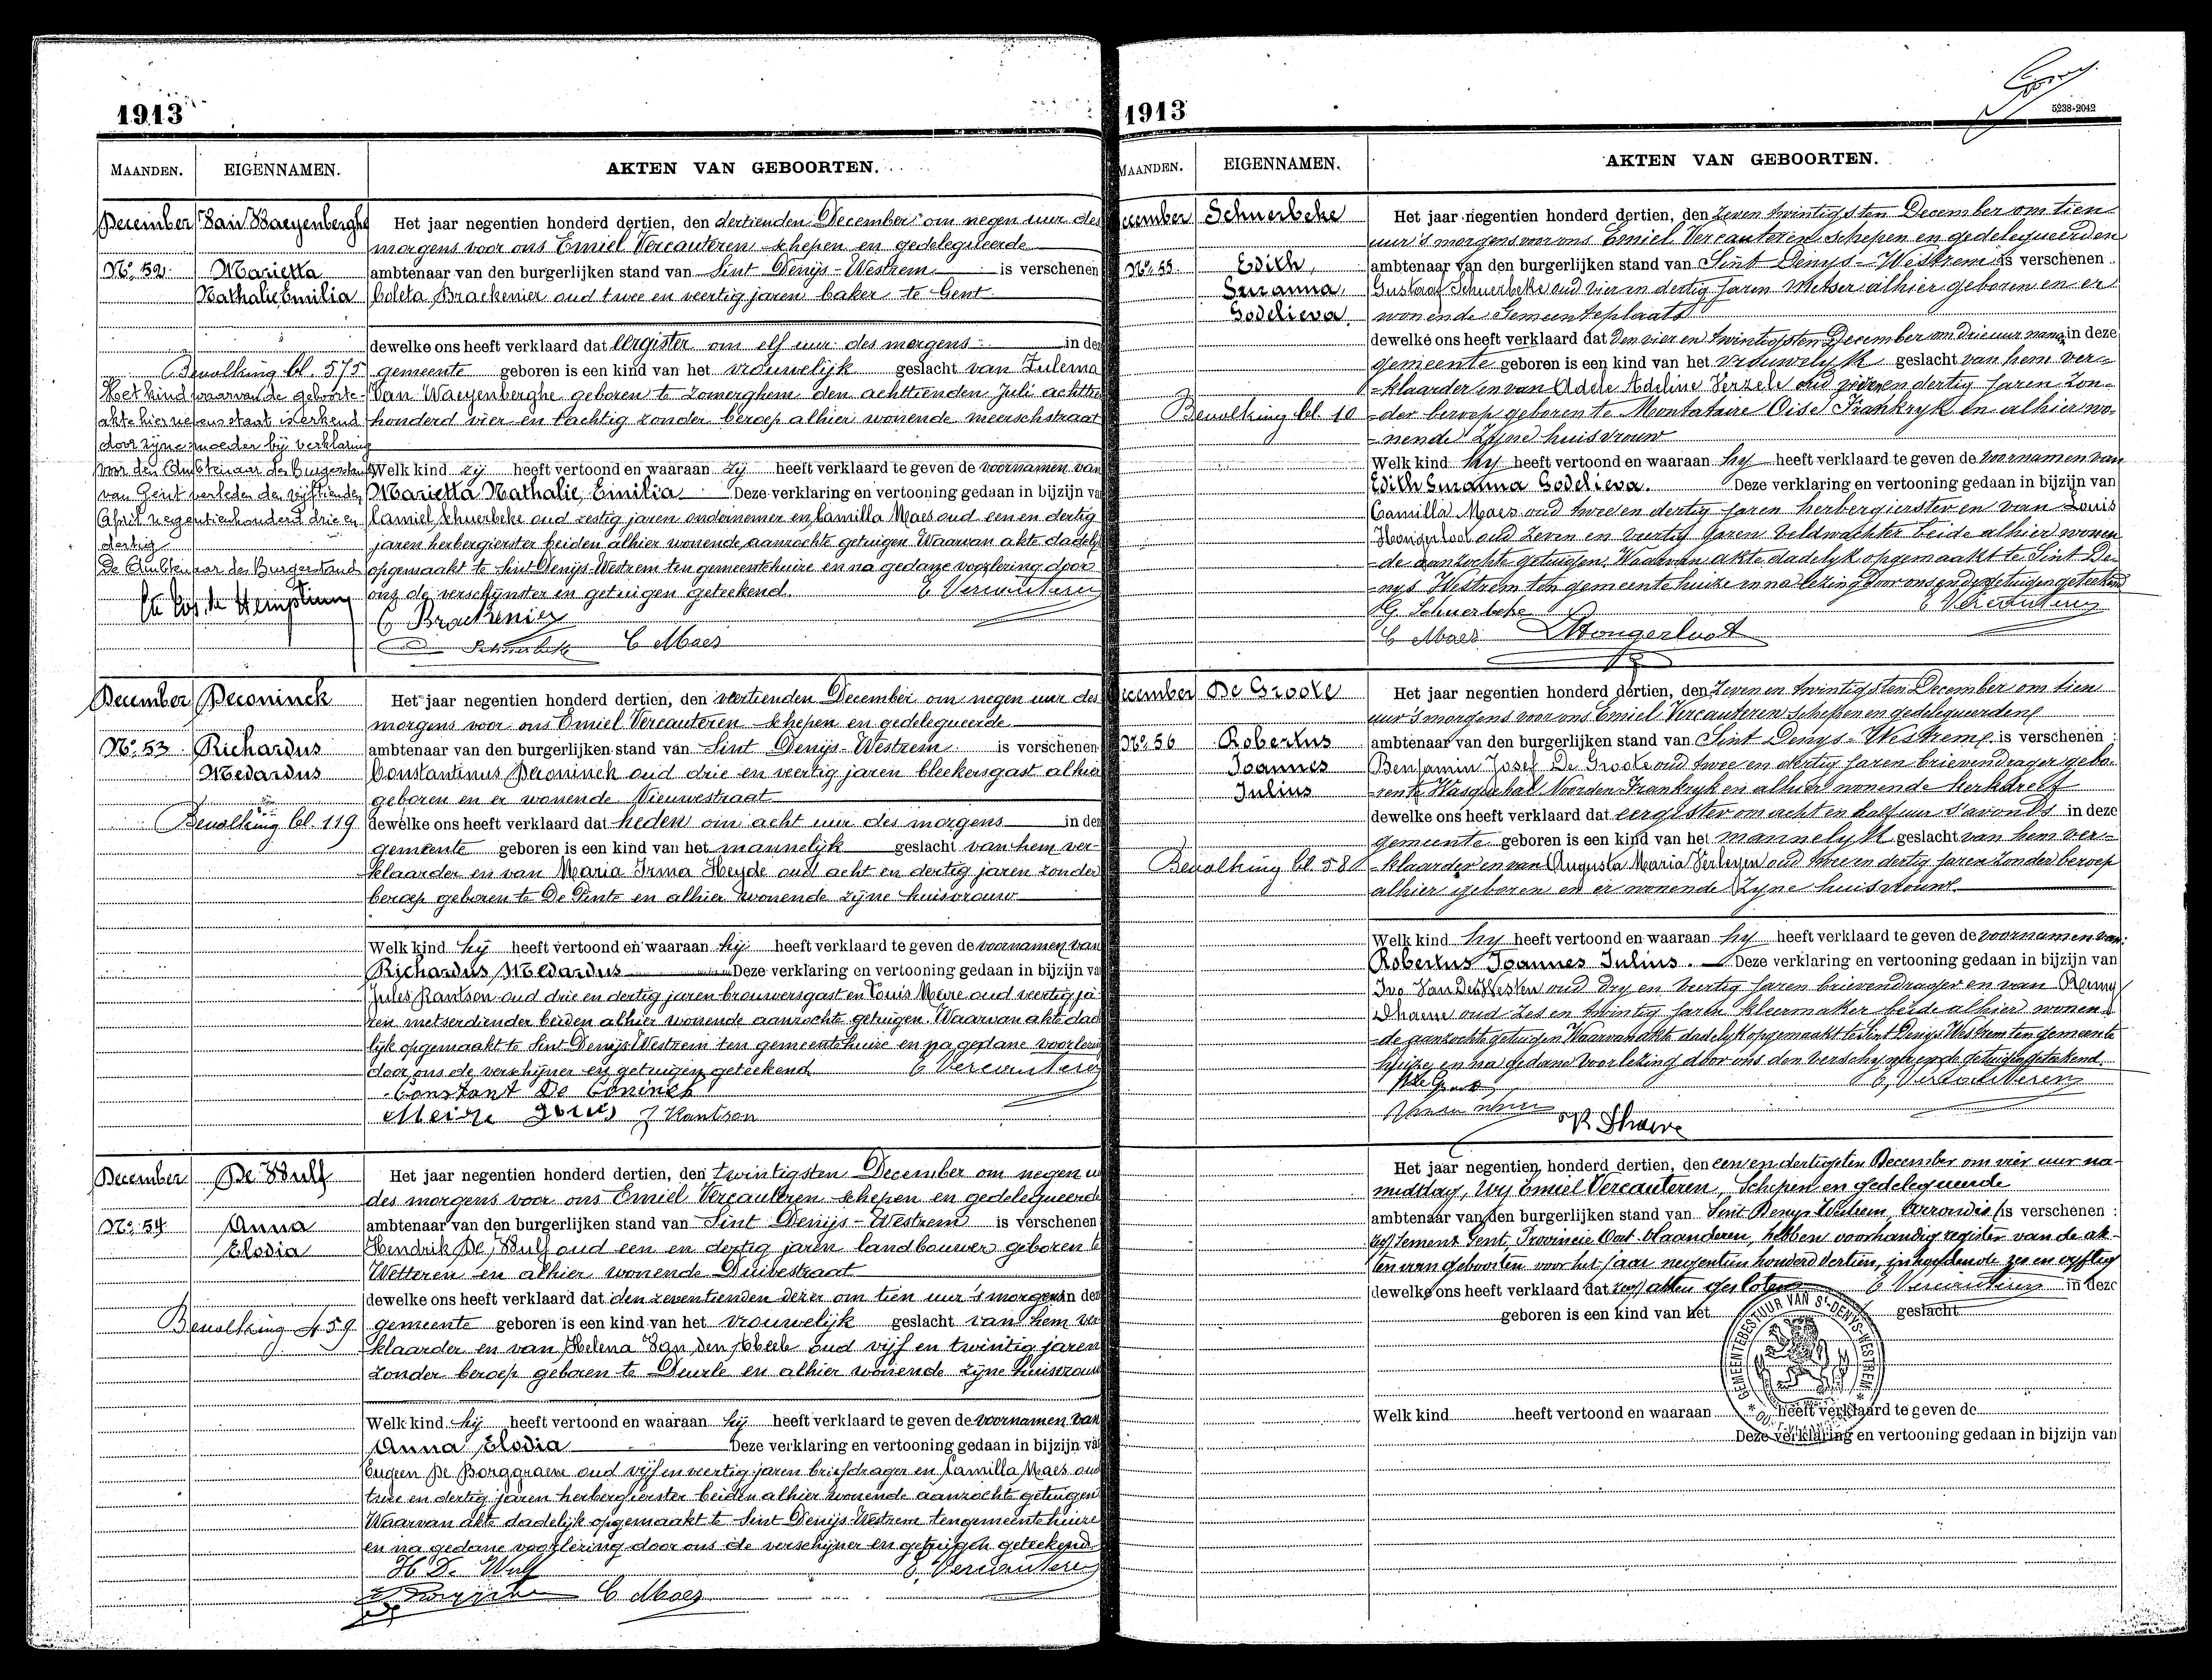 1913
MAANDEN. EIGENNAMEN. AKTEN VAN GEBOORTEN.
December Van Waeyenberghe Het jaar negentien honderd dertien, den dertienden December om negen uur des
morgens voor ons Emiel Vercauteren schepen en gedelegueerde
No 52. Marietta ambtenaar van den burgerlijken stand van Sint Denijs-Westrem is verschenen
Nathalie Emilia Coleta Brackenier oud twee en veertig jaren baker te Gent
dewelke ons heeft verklaard dat eergister om elf uur des morgens in de
Bevolking bl. 575 gemeente geboren is een kind van het vrouwelijk geslacht van Zulema
Het kind waarvan de geboorte- Van Waeyenberghe geboren te Zomerghem den achttienden Juli achttien
akte hiernevens staat is erkend honderd vier en tachtig zonder beroep alhier wonende meerschstraat
door zijne moeder bij verklaring
voor den Ambtenaar des Burgerstand Welk kind zij heeft vertoond en waaraan zij heeft verklaard te geven de voornamen van
van Gent verleden den vijftienden Marietta Nathalie Emilia Deze verklaring en vertooning gedaan in bijzijn va
April negentienhonderd drie en Camiel Schuerbeke oud zestig jaren ondernemer en Camilla Maes oud een en dertig
dertig jaren herbergierster beiden alhier wonende aanzochte getuigen Waarvan akte dadelij
De Ambtenaar des Burgerstand opgemaakt te Sint Denijs-Westrem ten gemeentehuize en na gedane voorlezing door
ons de verschijnster en getuigen geteekend. E Vercauteren
C Brackenier
Schuerbeke C Maes
December Deconinck Het jaar negentien honderd dertien, den veertienden December om negen uur des
morgens voor ons Emiel Vercauteren schepen en gedelegueerde
No 53 Richardus ambtenaar van den burgerlijken stand van Sint Denijs-Westrem is verschenen
Medardus Constantinus Deconinck oud drie en veertig jaren bleekersgast alhier
geboren en er wonende Nieuwestraat
Bevolking bl. 119 dewelke ons heeft verklaard dat heden om acht uur des morgens in de
gemeente geboren is een kind van het mannelijk geslacht van hem ver-
klaarder en van Maria Irma Heyde oud acht en dertig jaren zonder
beroep geboren te De Pinte en alhier wonende zijne huisvrouw
Welk kind hij heeft vertoond en waaraan hij heeft verklaard te geven de voornamen van
Richardus Medardus Deze verklaring en vertooning gedaan in bijzijn va
Jules Rantson oud drie en dertig jaren brouwersgast en Louis Meire oud veertig ja
ren metserdiender beiden alhier wonende aanzochte getuigen. Waarvan akte dade
lijk opgemaakt te Sint Denijs Westrem ten gemeentehuize en na gedane voorlezin
door ons de verschijner en getuigen geteekend E Vercauteren
Constant De Coninck
Meire Louis J Rantson
December De Wulf Het jaar negentien honderd dertien, den twintigsten December om negen u
des morgens voor ons Emiel Vercauteren schepen en gedelegueerde
No 54 Anna ambtenaar van den burgerlijken stand van Sint Denijs-Westrem is verschenen
Elodia Hendrik De Wulf oud een en dertig jaren landbouwer geboren te
Wetteren en alhier wonende Duivestraat
dewelke ons heeft verklaard dat den zeventienden dezer om tien uur 's morgens in de
Bevolking 459 gemeente geboren is een kind van het vrouwelijk geslacht van hem ver
klaarder en van Helena Van den Abeele oud vijf en twintig jaren
zonder beroep geboren te Deurle en alhier wonende zijne huisvrouw
Welk kind hij heeft vertoond en waaraan hij heeft verklaard te geven de voornamen van
Anna Elodia Deze verklaring en vertooning gedaan in bijzijn va
Eugeen De Borggraeve oud vijf en veertig jaren briefdrager en Camilla Maes oud
twee en dertig jaren herbergierster beiden alhier wonende aanzochte getuigen
Waarvan akte dadelijk opgemaakt te Sint Denijs Westrem ten gemeentehuize
en na gedane voorlezing door ons de verschijner en getuigen geteekend
H De Wulf E Vercauteren
C Maes
1913
5238-2042
MAANDEN. EIGENNAMEN. AKTEN VAN GEBOORTEN.
December Schuerbeke Het jaar negentien honderd dertien, den zeven twintigsten December om tien
uur 's morgens voor ons Emiel Vercauteren schepen en gedelegueerden
No 55. Edith, ambtenaar van den burgerlijken stand van Sint Denys-Westrem is verschenen
Suzanna, Gustaaf Schuerbeke oud vier en dertig jaren Metser alhier geboren en er
Godelieva. wonende Gemeenteplaats
dewelke ons heeft verklaard dat den vier en twintigsten December om drie uur namin in deze
gemeente geboren is een kind van het vrouwelyk geslacht van hem ver-
-klaarder en van Adele Adeline Verzele oud vier en dertig jaren zon-
Bevolking bl. 10 -der beroep geboren te Montataire Oise Frankryk en alhier wo-
-nende zyne huisvrouw
Welk kind hy heeft vertoond en waaraan hy heeft verklaard te geven de voornamen van
Edith Suzanna Godelieva. Deze verklaring en vertooning gedaan in bijzijn van
Camilla Maes oud twee en dertig jaren herbergierster en van Louis
Hongerloot oud zeven en veertig jaren veldwachter beide alhier wonen
-de aanzochte getuigen. Waarvan akte dadelyk opgemaakt te Sint De-
-nys Westrem ten gemeentehuize en na lezing door ons en de getuigen geteekend
G. Schuerbeke E Vercauteren
C Maes L Hongerloot
December De Groote Het jaar negentien honderd dertien, den zeven en twintigsten December om tien
uur 's morgens voor ons Emiel Vercauteren schepen en gedelegueerden
No 56 Robertus ambtenaar van den burgerlijken stand van Sint Denys-Westrem is verschenen :
Joannes Benjamin Josef De Groote oud twee en dertig jaren brievendrager gebo-
Julius -ren te Wasquehal Noorden Frankryk en alhier wonende Kerkdreef
dewelke ons heeft verklaard dat eergister om acht en half uur s'avonds in deze
gemeente geboren is een kind van het mannelyk geslacht van hem ver-
Bevolking bl. 580 -klaarder en van Augusta Maria Verleyen oud twee en dertig jaren zonder beroep
alhier geboren en er wonende Zyne huisvrouw.
Welk kind hy heeft vertoond en waaraan hy heeft verklaard te geven de voornamen van:
Robertus Joannes Julius. Deze verklaring en vertooning gedaan in bijzijn van
Ivo oud dry en veertig jaren brievendrager en van Remy
Dhaene oud zes en twintig jaren kleermaker beide alhier wonen
-de aanzochte getuigen Waarvan akte dadelyk opgemaakt te Sint Denys Westrem ten gemeente
huize en na gedane voorlezing door ons den verschyner en de getuigen geteekend.
E. Vercauteren
R Dhaene
Het jaar negentien honderd dertien, den een en dertigsten December om vier uur na-
middag, Wy Emiel Vercauteren, Schepen en gedelegueerde
ambtenaar van den burgerlijken stand van Sint Denys Westrem, Arrondis is verschenen :
sement Gent, Provincie Oost Vlaanderen, hebben voorhandig register van de ak-
ten van geboorten voor het jaar negentien honderd dertien, inhoudende zes en vyftig
dewelke ons heeft verklaard dat akten gesloten E Vercauteren in deze
geboren is een kind van het geslacht
GEMEENTEBESTUUR VAN ST-DENYS-WESTREM
Welk kind heeft vertoond en waaraan heeft verklaard te geven de
Deze verklaring en vertooning gedaan in bijzijn van